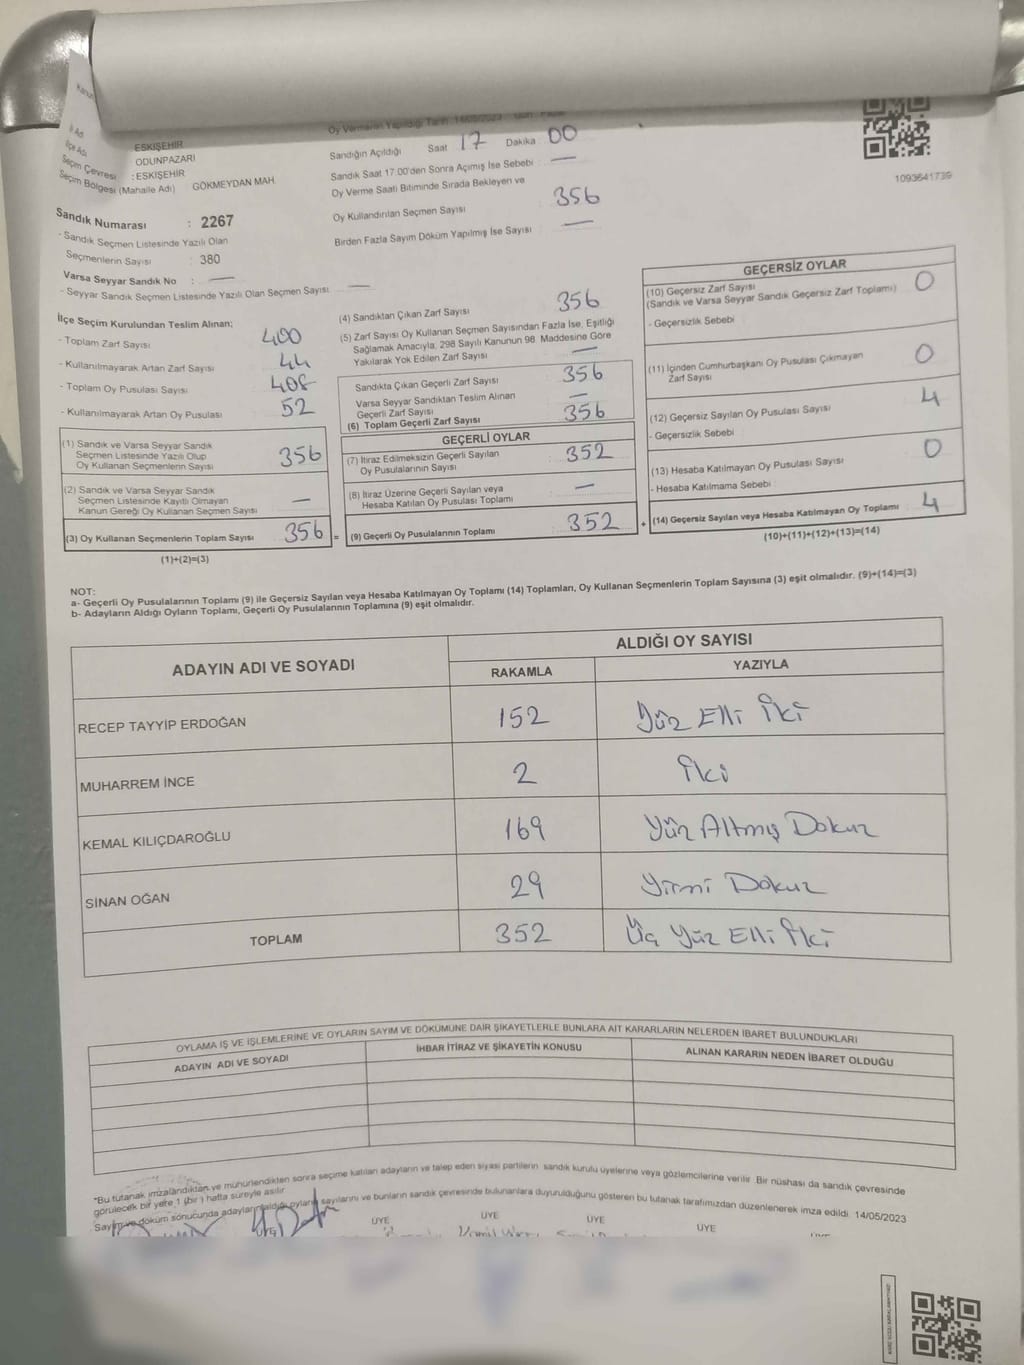 Kanun
Oy Vermenin Yapıldığı Tarih 14/05/2023 Gün
İl Adı ESKİŞEHİR
Sandığın Açıldığı Saat 17 Dakika 00
İlçe Adı ODUNPAZARI
Sandık Saat 17.00'den Sonra Açımış İse Sebebi —
Seçim Çevresi : ESKİŞEHİR
Oy Verme Saati Bitiminde Sırada Bekleyen ve
Seçim Bölgesi (Mahalle Adı) GÖKMEYDAN MAH.
Oy Kullandırılan Seçmen Sayısı 356
1093641739
Birden Fazla Sayım Döküm Yapılmış İse Sayısı —
Sandık Numarası : 2267
- Sandık Seçmen Listesinde Yazılı Olan
Seçmenlerin Sayısı : 380
Varsa Seyyar Sandık No : —
- Seyyar Sandık Seçmen Listesinde Yazılı Olan Seçmen Sayısı —
İlçe Seçim Kurulundan Teslim Alınan;
- Toplam Zarf Sayısı 400
- Kullanılmayarak Artan Zarf Sayısı 44
- Toplam Oy Pusulası Sayısı 408
- Kullanılmayarak Artan Oy Pusulası 52
(1) Sandık ve Varsa Seyyar Sandık
Seçmen Listesinde Yazılı Olup
Oy Kullanan Seçmenlerin Sayısı 356
(2) Sandık ve Varsa Seyyar Sandık
Seçmen Listesinde Kayıtlı Olmayan
Kanun Gereği Oy Kullanan Seçmen Sayısı —
(3) Oy Kullanan Seçmenlerin Toplam Sayısı 356 =
(1)+(2)=(3)
(4) Sandıktan Çıkan Zarf Sayısı 356
(5) Zarf Sayısı Oy Kullanan Seçmen Sayısından Fazla İse, Eşitliği
Sağlamak Amacıyla, 298 Sayılı Kanunun 98. Maddesine Göre
Yakılarak Yok Edilen Zarf Sayısı —
Sandıkta Çıkan Geçerli Zarf Sayısı 356
Varsa Seyyar Sandıktan Teslim Alınan
Geçerli Zarf Sayısı —
(6) Toplam Geçerli Zarf Sayısı 356
GEÇERLİ OYLAR
(7) İtiraz Edilmeksizin Geçerli Sayılan
Oy Pusulalarının Sayısı 352
(8) İtiraz Üzerine Geçerli Sayılan veya
Hesaba Katılan Oy Pusulası Toplamı —
(9) Geçerli Oy Pusulalarının Toplamı 352 +
GEÇERSİZ OYLAR
(10) Geçersiz Zarf Sayısı 0
(Sandık ve Varsa Seyyar Sandık Geçersiz Zarf Toplamı)
- Geçersizlik Sebebi
(11) İçinden Cumhurbaşkanı Oy Pusulası Çıkmayan 0
Zarf Sayısı
(12) Geçersiz Sayılan Oy Pusulası Sayısı 4
- Geçersizlik Sebebi
(13) Hesaba Katılmayan Oy Pusulası Sayısı 0
- Hesaba Katılmama Sebebi
(14) Geçersiz Sayılan veya Hesaba Katılmayan Oy Toplamı 4
(10)+(11)+(12)+(13)=(14)
NOT:
a- Geçerli Oy Pusulalarının Toplamı (9) ile Geçersiz Sayılan veya Hesaba Katılmayan Oy Toplamı (14) Toplamları, Oy Kullanan Seçmenlerin Toplam Sayısına (3) eşit olmalıdır. (9)+(14)=(3)
b- Adayların Aldığı Oyların Toplamı, Geçerli Oy Pusulalarının Toplamına (9) eşit olmalıdır.
ADAYIN ADI VE SOYADI ALDIĞI OY SAYISI
RAKAMLA YAZIYLA
RECEP TAYYİP ERDOĞAN 152 Yüz Elli İki
MUHARREM İNCE 2 İki
KEMAL KILIÇDAROĞLU 169 Yüz Altmış Dokuz
SİNAN OĞAN 29 Yirmi Dokuz
TOPLAM 352 Üç Yüz Elli İki
OYLAMA İŞ VE İŞLEMLERİNE VE OYLARIN SAYIM VE DÖKÜMÜNE DAİR ŞİKAYETLERLE BUNLARA AİT KARARLARIN NELERDEN İBARET BULUNDUKLARI
ADAYIN ADI VE SOYADI İHBAR İTİRAZ VE ŞİKAYETİN KONUSU ALINAN KARARIN NEDEN İBARET OLDUĞU
"Bu tutanak imzalandıktan ve mühürlendikten sonra seçime katılan adayların ve talep eden siyasi partilerin sandık kurulu üyelerine veya gözlemcilerine verilir. Bir nüshası da sandık çevresinde
görülecek bir yere 1 (bir) hafta süreyle asılır.
Sayım ve döküm sonucunda adayların aldığı oyların sayılarını ve bunların sandık çevresinde bulunanlara duyurulduğunu gösteren bu tutanak tarafımızdan düzenlenerek imza edildi. 14/05/2023
ÜYE ÜYE ÜYE ÜYE ÜYE